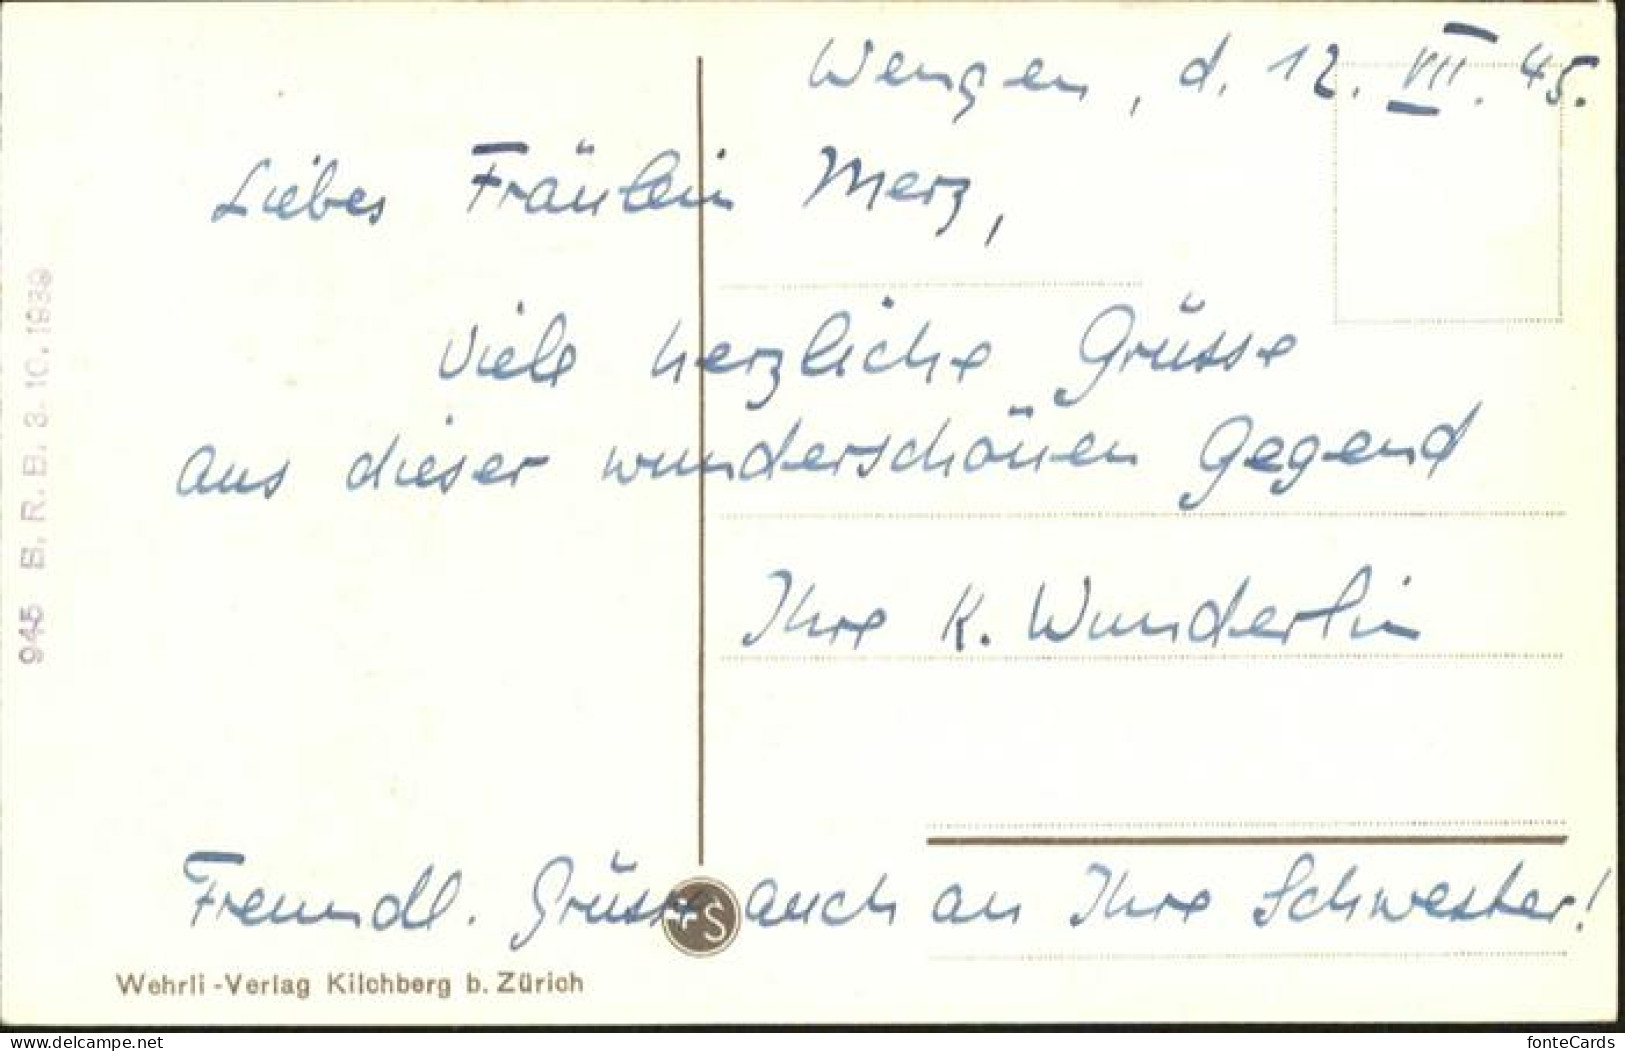 Wengen, d. 12. VII. 45.
Liebes Fräulein Merz,
Viele herzliche Grüsse
aus dieser wunderschönen Gegend
Ihre K. Wunderlin
Freundl. Grüsse auch an Ihre Schwester!
+S
Wehrli-Verlag Kilchberg b. Zürich
945 B. R. B. 3. 10. 1939
www.delcampe.net
fonteCards